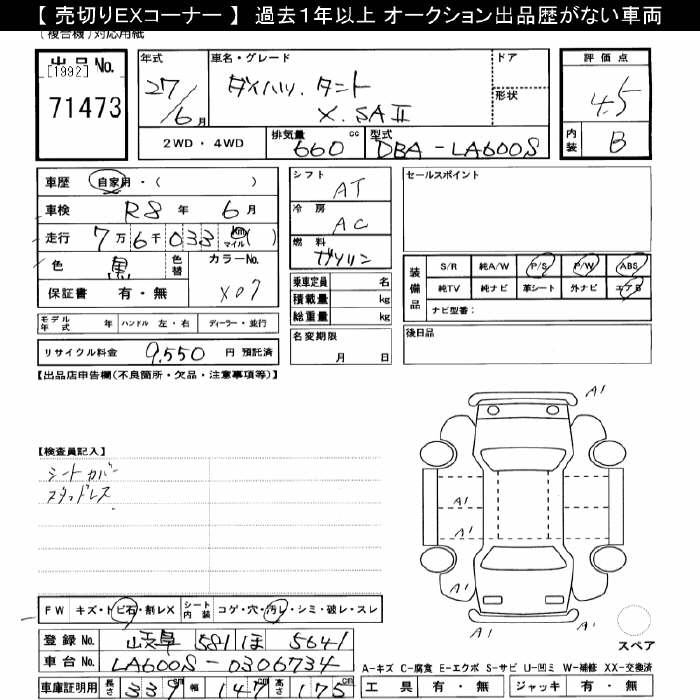 【 売切りEXコーナー 】 過去1年以上 オークション出品歴がない車両
(複合機)対応用紙
出品 No.
[1992]
71473
年式
27/6月
車名・グレード
ダイハツ. タント
X. SAⅡ
ドア
形状
評価点
4.5
内装
B
2WD・4WD
排気量
660 cc
型式
DBA-LA600S
車歴 自家用・( )
車検 R8 年 6 月
走行 7万6千033 km マイル( )
色 黒 色替
カラーNo.
X07
保証書 有・無
シフト
AT
冷房
AC
燃料
ガソリン
乗車定員 名
積載量 kg
総重量 kg
セールスポイント
装備品
S/R 純A/W P/S P/W ABS
純TV 純ナビ 革シート 外ナビ エアB
ナビ型番:
モデル年式 年 ハンドル 左・右 ディーラー・並行
リサイクル料金 9,550 円 預託済
名変期限
月 日
後日品
【出品店申告欄(不良箇所・欠品・注意事項等)】
A1 A1
【検査員記入】
シートカバー
スタッドレス
A1
A1
A1
A1 A1
FW キズ・トビ石・割レX シート内装 コゲ・穴・汚レ・シミ・破レ・スレ
登録 No. 岐阜 581 ほ 5641
車台 No. LA600S-0306734
車庫証明用 長さ 339 cm 幅 147 cm 高さ 175 cm
スペア
A-キズ C-腐食 E-エクボ S-サビ U-凹ミ W-補修 XX-交換済
工具 有・無 ジャッキ 有・無